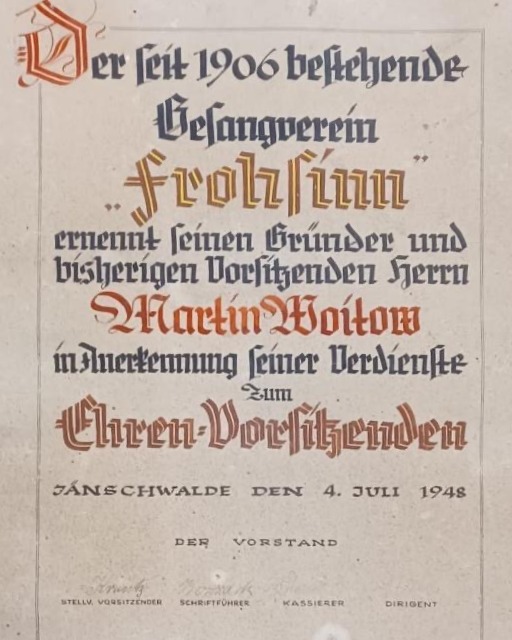 Der seit 1906 bestehende
Gesangverein
„Frohsinn”
ernennt seinen Gründer und
bisherigen Vorsitzenden Herrn
Martin Woitow
in Anerkennung seiner Verdienste
zum
Ehren-Vorsitzenden
JÄNSCHWALDE DEN 4. JULI 1948
DER VORSTAND
STELLV. VORSITZENDER SCHRIFTFÜHRER KASSIERER DIRIGENT